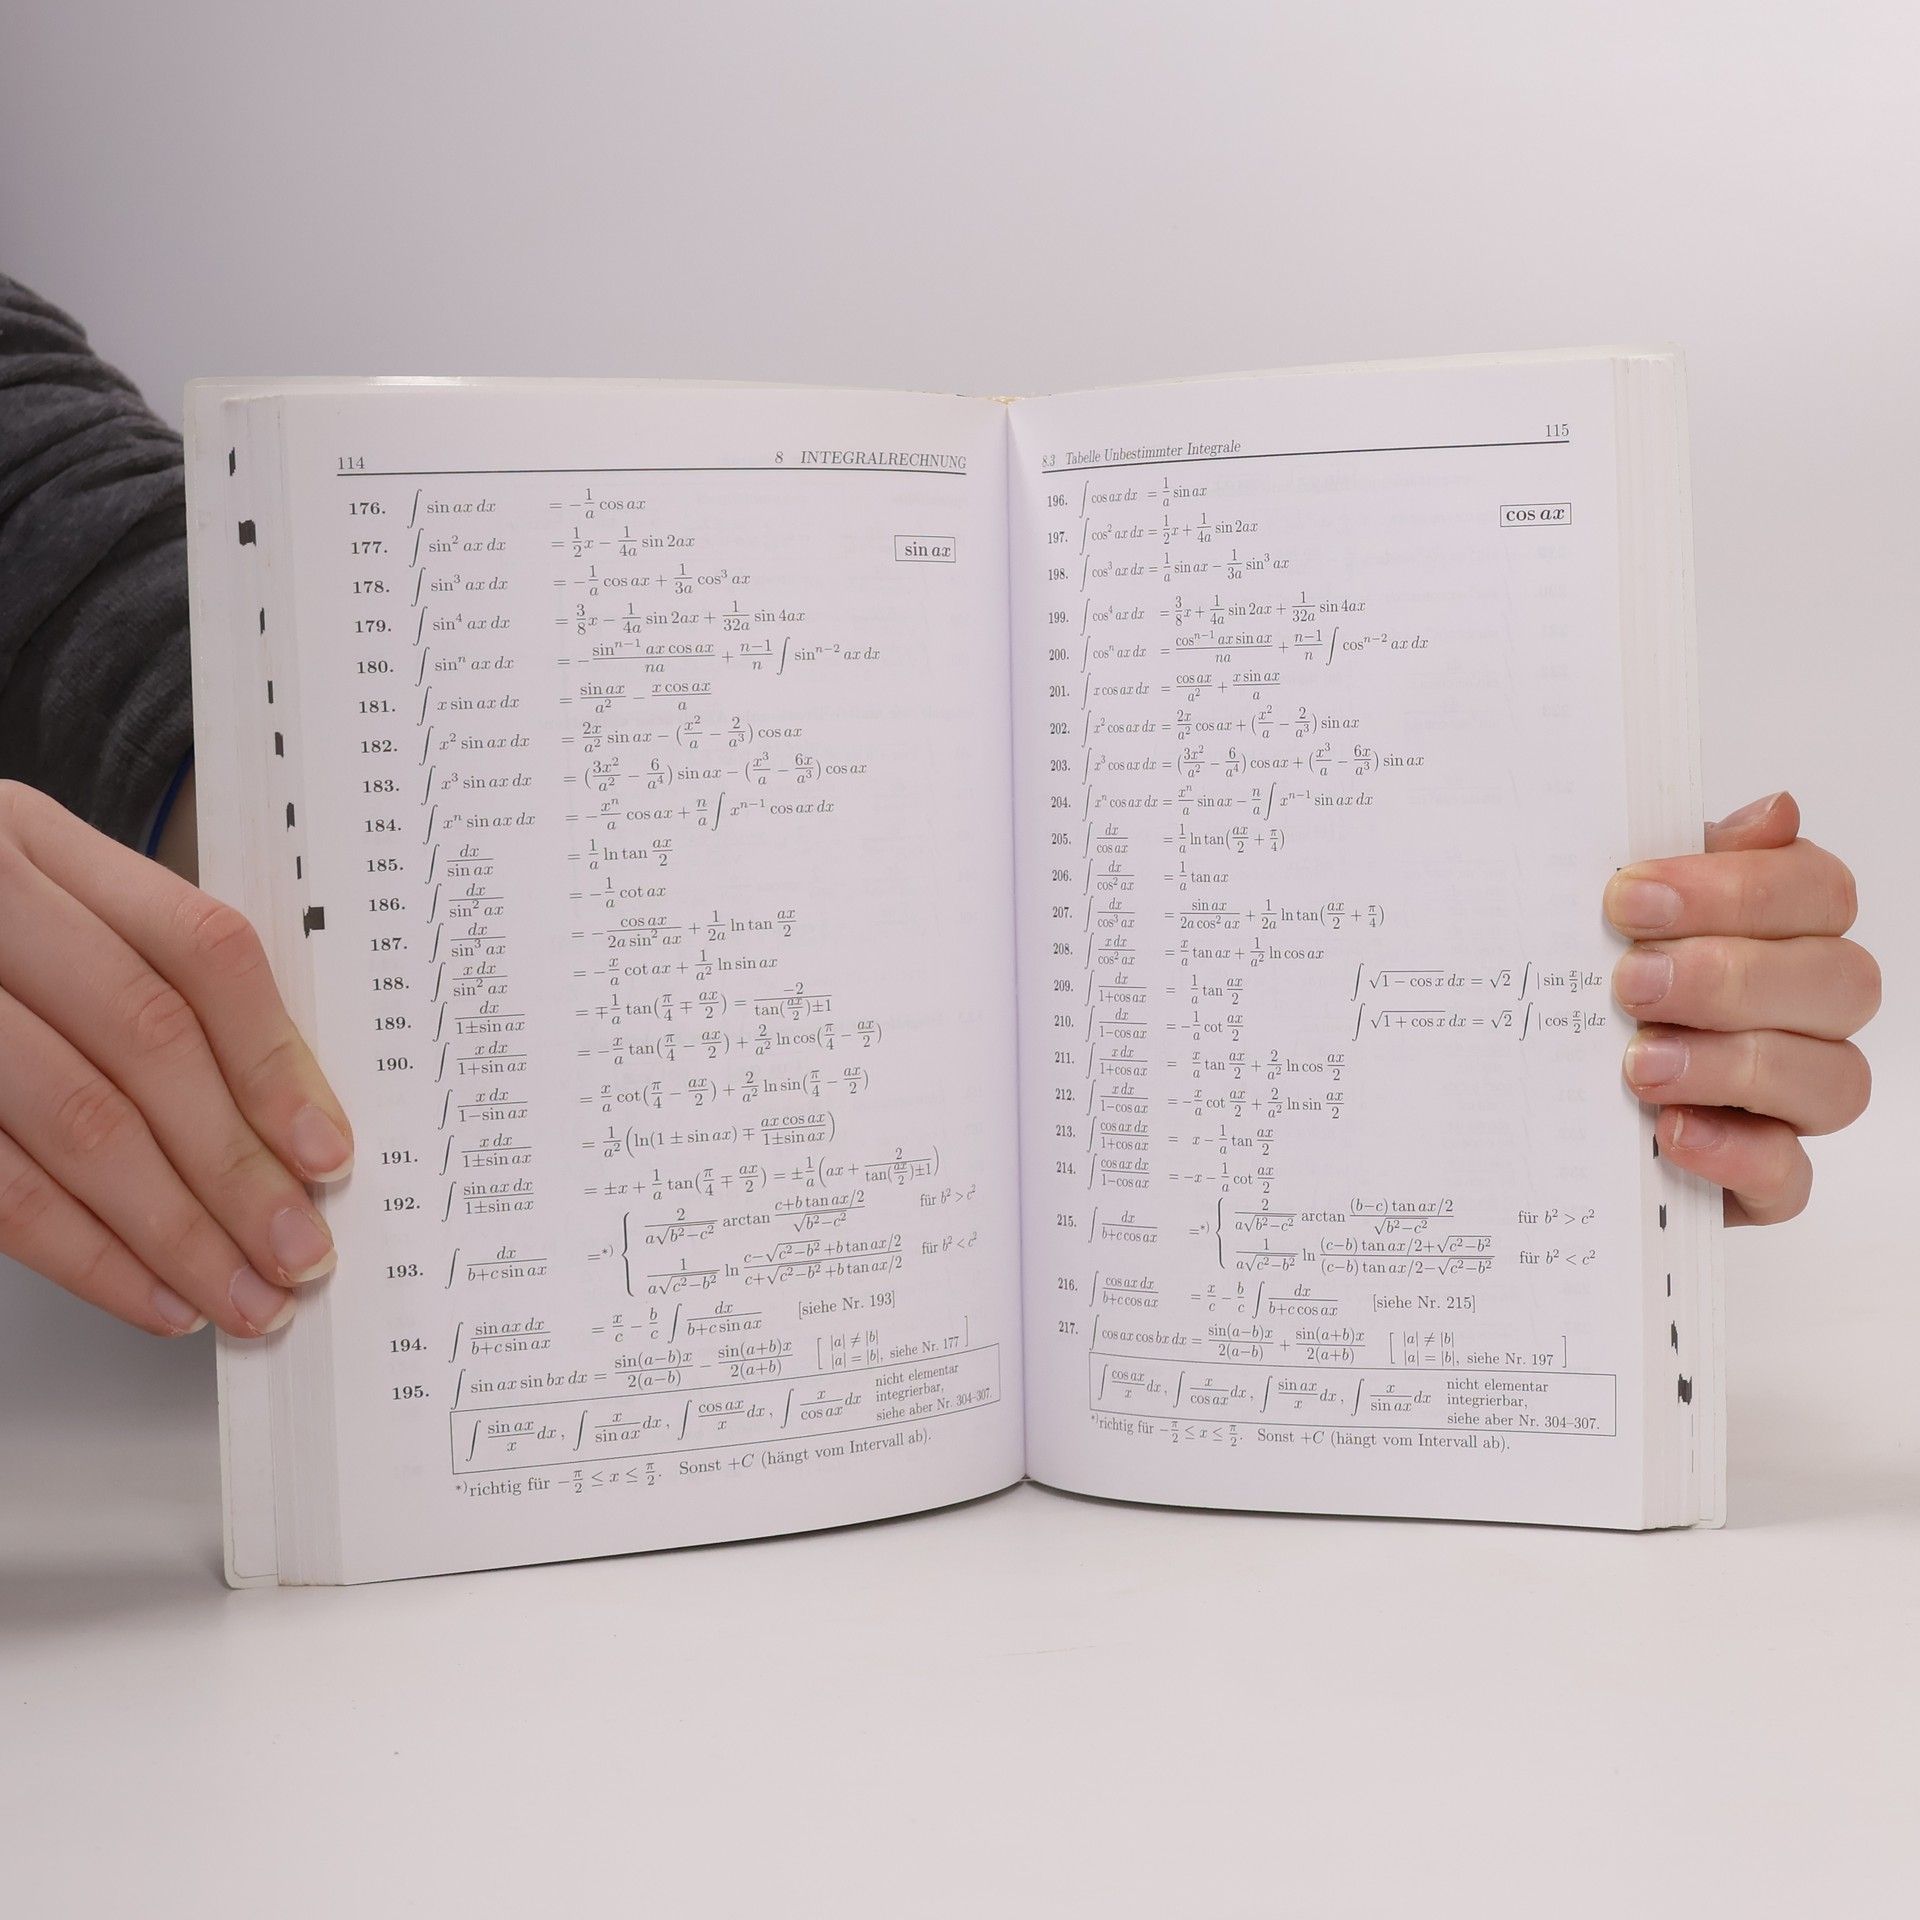 114 8 INTEGRALRECHNUNG
176. ∫ sin ax dx = −1/a cos ax
177. ∫ sin² ax dx = 1/2 x − 1/4a sin 2ax
sin ax
178. ∫ sin³ ax dx = −1/a cos ax + 1/3a cos³ ax
179. ∫ sin⁴ ax dx = 3/8 x − 1/4a sin 2ax + 1/32a sin 4ax
180. ∫ sinⁿ ax dx = −(sinⁿ⁻¹ ax cos ax)/(na) + (n−1)/n ∫ sinⁿ⁻² ax dx
181. ∫ x sin ax dx = (sin ax)/a² − (x cos ax)/a
182. ∫ x² sin ax dx = 2x/a² sin ax − (x²/a − 2/a³) cos ax
183. ∫ x³ sin ax dx = (3x²/a² − 6/a⁴) sin ax − (x³/a − 6x/a³) cos ax
184. ∫ xⁿ sin ax dx = −xⁿ/a cos ax + n/a ∫ xⁿ⁻¹ cos ax dx
185. ∫ dx/(sin ax) = 1/a ln tan ax/2
186. ∫ dx/(sin² ax) = −1/a cot ax
187. ∫ dx/(sin³ ax) = −(cos ax)/(2a sin² ax) + 1/2a ln tan ax/2
188. ∫ x dx/(sin² ax) = −x/a cot ax + 1/a² ln sin ax
189. ∫ dx/(1±sin ax) = ∓1/a tan(π/4 ∓ ax/2) = −2/(tan(ax/2)±1)
190. ∫ x dx/(1+sin ax) = −x/a tan(π/4 − ax/2) + 2/a² ln cos(π/4 − ax/2)
∫ x dx/(1−sin ax) = x/a cot(π/4 − ax/2) + 2/a² ln sin(π/4 − ax/2)
191. ∫ x dx/(1±sin ax) = 1/a² (ln(1 ± sin ax) ∓ (ax cos ax)/(1±sin ax))
192. ∫ sin ax dx/(1±sin ax) = ±x + 1/a tan(π/4 ∓ ax/2) = ±1/a (ax + 2/(tan(ax/2)±1))
193. ∫ dx/(b+c sin ax) =*) { 2/(a√(b²−c²)) arctan (c+b tan ax/2)/√(b²−c²) für b² > c²
1/(a√(c²−b²)) ln (c−√(c²−b²)+b tan ax/2)/(c+√(c²−b²)+b tan ax/2) für b² < c²
194. ∫ sin ax dx/(b+c sin ax) = x/c − b/c ∫ dx/(b+c sin ax) [siehe Nr. 193]
195. ∫ sin ax sin bx dx = sin(a−b)x/2(a−b) − sin(a+b)x/2(a+b) [ |a| ≠ |b|
|a| = |b|, siehe Nr. 177 ]
∫ (sin ax)/x dx , ∫ x/(sin ax) dx , ∫ (cos ax)/x dx , ∫ x/(cos ax) dx nicht elementar
integrierbar,
siehe aber Nr. 304-307.
*) richtig für −π/2 ≤ x ≤ π/2. Sonst +C (hängt vom Intervall ab).
8.3 Tabelle Unbestimmter Integrale 115
196. ∫ cos ax dx = 1/a sin ax
cos ax
197. ∫ cos² ax dx = 1/2 x + 1/4a sin 2ax
198. ∫ cos³ ax dx = 1/a sin ax − 1/3a sin³ ax
199. ∫ cos⁴ ax dx = 3/8 x + 1/4a sin 2ax + 1/32a sin 4ax
200. ∫ cosⁿ ax dx = (cosⁿ⁻¹ ax sin ax)/(na) + (n−1)/n ∫ cosⁿ⁻² ax dx
201. ∫ x cos ax dx = (cos ax)/a² + (x sin ax)/a
202. ∫ x² cos ax dx = 2x/a² cos ax + (x²/a − 2/a³) sin ax
203. ∫ x³ cos ax dx = (3x²/a² − 6/a⁴) cos ax + (x³/a − 6x/a³) sin ax
204. ∫ xⁿ cos ax dx = xⁿ/a sin ax − n/a ∫ xⁿ⁻¹ sin ax dx
205. ∫ dx/(cos ax) = 1/a ln tan(ax/2 + π/4)
206. ∫ dx/(cos² ax) = 1/a tan ax
207. ∫ dx/(cos³ ax) = (sin ax)/(2a cos² ax) + 1/2a ln tan(ax/2 + π/4)
208. ∫ x dx/(cos² ax) = x/a tan ax + 1/a² ln cos ax
209. ∫ dx/(1+cos ax) = 1/a tan ax/2 ∫ √(1 − cos x) dx = √2 ∫ | sin x/2 |dx
210. ∫ dx/(1−cos ax) = −1/a cot ax/2 ∫ √(1 + cos x) dx = √2 ∫ | cos x/2 |dx
211. ∫ x dx/(1+cos ax) = x/a tan ax/2 + 2/a² ln cos ax/2
212. ∫ x dx/(1−cos ax) = −x/a cot ax/2 + 2/a² ln sin ax/2
213. ∫ cos ax dx/(1+cos ax) = x − 1/a tan ax/2
214. ∫ cos ax dx/(1−cos ax) = −x − 1/a cot ax/2
215. ∫ dx/(b+c cos ax) =*) { 2/(a√(b²−c²)) arctan ((b−c) tan ax/2)/√(b²−c²) für b² > c²
1/(a√(c²−b²)) ln ((c−b) tan ax/2+√(c²−b²))/((c−b) tan ax/2−√(c²−b²)) für b² < c²
216. ∫ cos ax dx/(b+c cos ax) = x/c − b/c ∫ dx/(b+c cos ax) [siehe Nr. 215]
217. ∫ cos ax cos bx dx = sin(a−b)x/2(a−b) + sin(a+b)x/2(a+b) [ |a| ≠ |b|
|a| = |b|, siehe Nr. 197 ]
∫ (cos ax)/x dx , ∫ x/(cos ax) dx , ∫ (sin ax)/x dx , ∫ x/(sin ax) dx nicht elementar
integrierbar,
siehe aber Nr. 304–307.
*) richtig für −π/2 ≤ x ≤ π/2. Sonst +C (hängt vom Intervall ab).